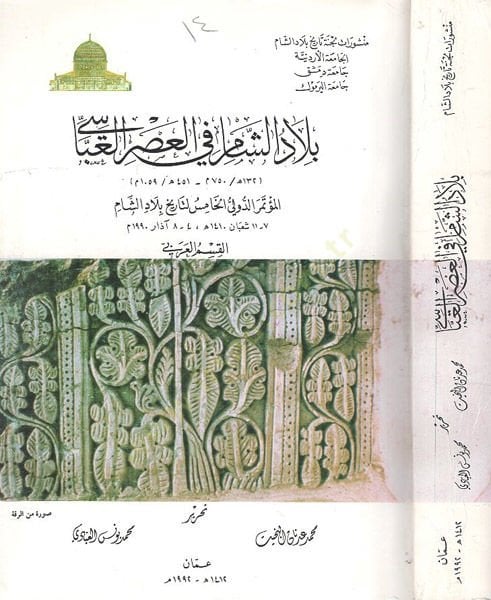 ١٤
منشورات لجنة تاريخ بلاد الشام
الجامعة الأردنية
جامعة دمشق
جامعة اليرموك
بلاد الشام في العصر العباسي
(١٣٢هـ/٧٥٠م - ٤٥١هـ/١٠٥٩م)
المؤتمر الدولي الخامس لتاريخ بلاد الشام
٧-١١ شعبان ١٤١٠هـ، ٤-٨ آذار ١٩٩٠م
القسم العربي
صورة من الرقة
تحرير
محمد عدنان البخيت
محمد يونس العبادي
عمّان
١٤١٢هـ - ١٩٩٢م
منشورات لجنة تاريخ بلاد الشام
بلاد الشام في العصر العباسي
محمد عدنان البخيت
تحرير
محمد يونس العبادي
عمّان
١٤١٢هـ - ١٩٩٢م